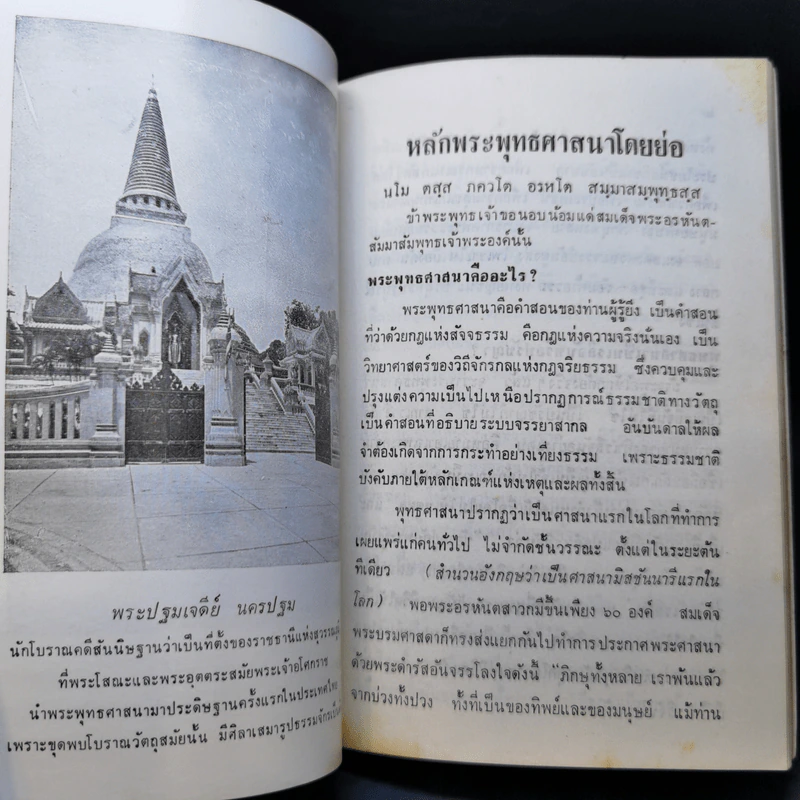 พระปฐมเจดีย์ นครปฐม
นักโบราณคดีสันนิษฐานว่าเป็นที่ตั้งของราชธานีแห่งสุวรรณภูมิ
ที่พระโสณะและพระอุตตระสมัยพระเจ้าอโศกราช
นำพระพุทธศาสนามาประดิษฐานครั้งแรกในประเทศไทย
เพราะขุดพบโบราณวัตถุสมัยนั้น มีศิลาเสมารูปธรรมจักร
หลักพระพุทธศาสนาโดยย่อ
นโม ตสฺส ภควโต อรหโต สมฺมาสมฺพุทฺธสฺส
ข้าพระพุทธเจ้าขอนอบน้อมแด่สมเด็จพระอรหันต-
สัมมาสัมพุทธเจ้าพระองค์นั้น
พระพุทธศาสนาคืออะไร ?
พระพุทธศาสนาคือคำสอนของท่านผู้รู้ยิ่ง เป็นคำสอน
ที่ว่าด้วยกฎแห่งสัจจธรรม คือกฎแห่งความจริงนั่นเอง เป็น
วิทยาศาสตร์ของวิถีจักรกลแห่งกฎจริยธรรม ซึ่งควบคุมและ
ปรุงแต่งความเป็นไปเหนือปรากฏการณ์ธรรมชาติทางวัตถุ
เป็นคำสอนที่อธิบายระบบจรรยาสากล อันบันดาลให้ผล
จำต้องเกิดจากการกระทำอย่างเที่ยงธรรม เพราะธรรมชาติ
บังคับภายใต้หลักเกณฑ์แห่งเหตุและผลทั้งสิ้น
พุทธศาสนาปรากฏว่าเป็นศาสนาแรกในโลกที่ทำการ
เผยแพร่แก่คนทั่วไป ไม่จำกัดชั้นวรรณะ ตั้งแต่ในระยะต้น
ทีเดียว (สำนวนอังกฤษว่าเป็นศาสนามิสชันนารีแรกใน
โลก) พอพระอรหันตสาวกมีขึ้นเพียง ๖๐ องค์ สมเด็จ
พระบรมศาสดาก็ทรงส่งแยกกันไปทำการประกาศพระศาสนา
ด้วยพระดำรัสอันจรรโลงใจดังนี้ "ภิกษุทั้งหลาย เราพ้นแล้ว
จากบ่วงทั้งปวง ทั้งที่เป็นของทิพย์และของมนุษย์ แม้ท่าน